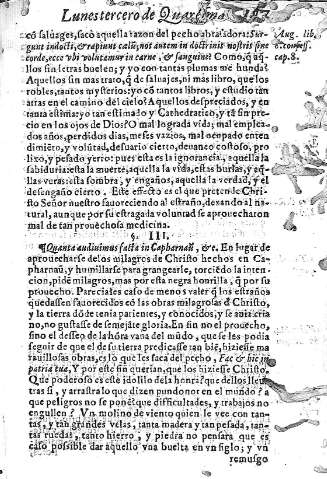 Lunes tercero de Quaresma
cō salúzges, sacò aquella razon del pecho abrasadora: Sur-
gunt indocti, & rapiunt cælū, nos autem in doctrinis nostris sine
corde, ecce vbi volutamur in carne, & sanguine? Como, q̄ aq̄-
llos sin letras buelen, y yo con tantas plumas me hunda?
Aquellos sin mas trato, q̄ de saluajes, ni mas libro, que los
robles, tantos mysterios: yo cō tantos libros, y estudio tan
atras en el camino del cielo? Aquellos despreciados, y en
tanta estima: yo tan estimado y Cathedratico, y tā sin pre-
cio en los ojos de Dios? O mal lograda vida; mal emplea-
dos años, perdidos dias, meses vazios, mal ocupado enten
dimiēto, y volūtad, desuario cierto, deuaneo costoso, pro
lixo, y pesado yerro: pues esta es la ignorancia, aquella la
sabiduria: esta la muerte, aquella la vida, estas burlas, y aq̄-
llas veras: esta sombra, y engaños, aquella la verdad, y el
desengaño cierto. Este effecto es el que pretende Chri-
sto Señor nuestro fauoreciendo al estraño, dexando al na-
tural, aunque por su estragada voluntad se aprouecharon
mal de tan prouechosa medicina.
§. III.
¶Quanta audiuimus facta in Capharnaũ, &c. En lugar de
aprouecharse de los milagros de Christo hechos en Ca-
pharnaũ, y humillarse para grangearle, torciēdo la inten-
cion, pidē milagros, mas por esta negra honrilla, q̄ por su
prouecho. Pareciales caso de menos valer q̄ los estraños
quedassen fauorecidos cō las obras milagrosas d̄ Christo,
y la tierra dōde tenia parientes, y conocidos, y se auia cria
do, no gustasse de semejāte gloria. En fin no el prouecho,
sino el desseo de la hōra vana del mūdo, que se les podia
seguir de que el de su tierra predicasse tan biē, hiziesse ma
rauillosas obras, es lo que les saca del pecho, Fac & hic in
patria tua, Y por este fin querian, que los hiziesse Christo.
Que poderoso es este idolillo de la honra? que dellos lleua
tras si, y arrastra lo que dizen pundonor en el mundo? a
que peligros no se ponē? que difficultades, y trabajos no
engullen? Vn molino de viento quien le vee con tan-
tas, y tan grandes velas, tanta madera y tan pesada, tan-
tas ruedas, tanto hierro, y piedra no pensara que es
caso possible dar aquello vna buelta en vn siglo; y vn
remusgo
Aug. lib.
8. confess.
cap. 8.